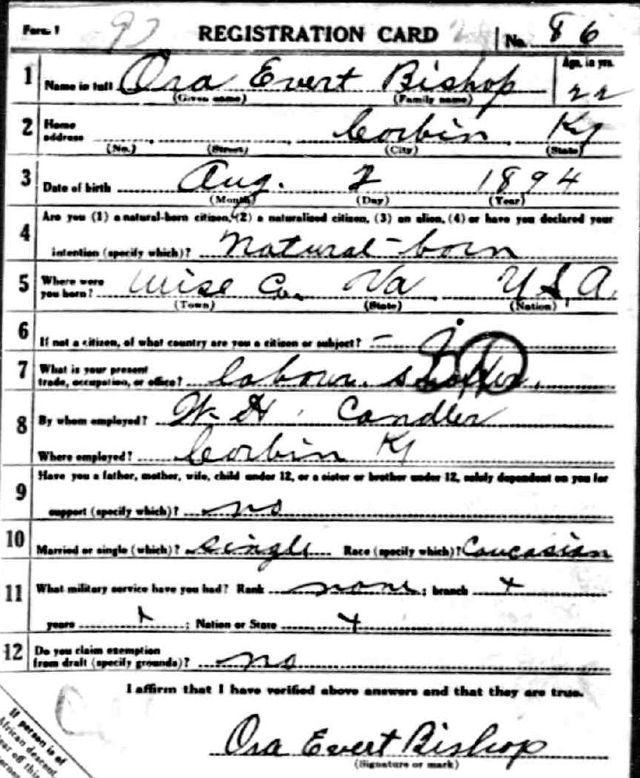 Form 1 REGISTRATION CARD No. 86
1 Name in full Ora Evert Bishop Age, in yrs. 22
(Given name) (Family name)
2 Home address Corbin Ky
(No.) (Street) (City) (State)
3 Date of birth Aug. 2 1894
(Month) (Day) (Year)
4 Are you (1) a natural-born citizen, (2) a naturalized citizen, (3) an alien, (4) or have you declared your
intention (specify which)? Natural-born
5 Where were you born? Wise Co. Va U.S.A.
(Town) (State) (Nation)
6 If not a citizen, of what country are you a citizen or subject? -
7 What is your present trade, occupation, or office? labour.
8 By whom employed? W. H. Candler
Where employed? Corbin Ky
9 Have you a father, mother, wife, child under 12, or a sister or brother under 12, solely dependent on you for
support (specify which)? no
10 Married or single (which)? single Race (specify which)? Caucasian
11 What military service have you had? Rank none; branch x
years x; Nation or State x
12 Do you claim exemption from draft (specify grounds)? no
I affirm that I have verified above answers and that they are true.
Ora Evert Bishop
(Signature or mark)
If person is of
African descent,